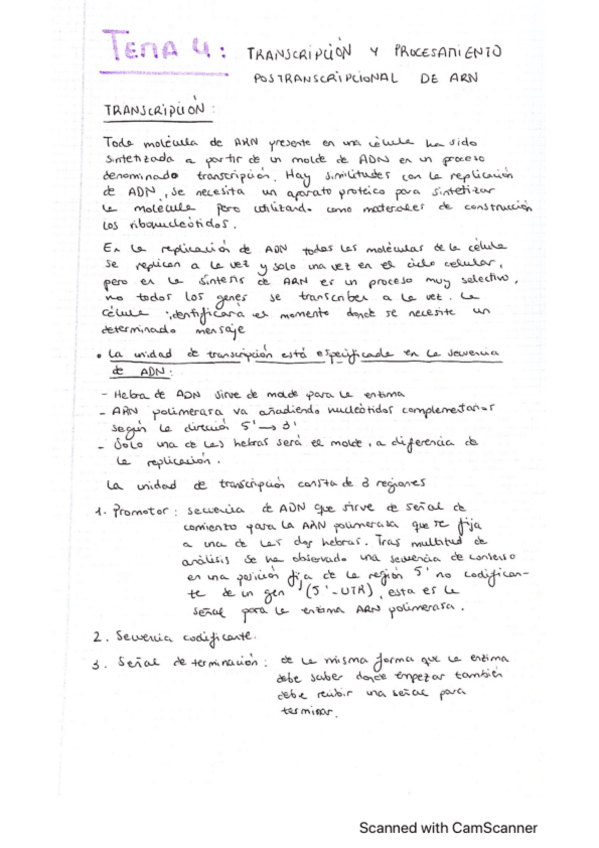 TEMA 4: TRANSCRIPCIÓN Y PROCESAMIENTO
POSTRANSCRIPCIONAL DE ARN
TRANSCRIPCIÓN:
Toda molécula de ARN presente en una célula ha sido
sintetizada a partir de un molde de ADN en un proceso
denominado transcripción. Hay similitudes con la replicación
de ADN, se necesita un aparato proteico para sintetizar
la molécula pero utilizando como materiales de construcción
los ribonucleótidos.
En la replicación de ADN todas las moléculas de la célula
se replican a la vez y solo una vez en el ciclo celular,
pero en la síntesis de ARN es un proceso muy selectivo,
no todos los genes se transcriben a la vez. La
célula identificará el momento donde se necesite un
determinado mensaje
• La unidad de transcripción está especificada en la secuencia
de ADN:
- Hebra de ADN sirve de molde para la enzima
- ARN polimerasa va añadiendo nucleótidos complementarios
según la dirección 5' → 3'
- Solo una de las hebras será el molde, a diferencia de
la replicación.
La unidad de transcripción consta de 3 regiones
1. Promotor: secuencia de ADN que sirve de señal de
comienzo para la ARN polimerasa que se fija
a una de las dos hebras. Tras multitud de
análisis se ha observado una secuencia de consenso
en una posición fija de la región 5' no codifican-
te de un gen (5'-UTR), esta es la
señal para la enzima ARN polimerasa.
2. Secuencia codificante.
3. Señal de terminación: de la misma forma que la enzima
debe saber donde empezar también
debe recibir una señal para
terminar.
Scanned with CamScanner